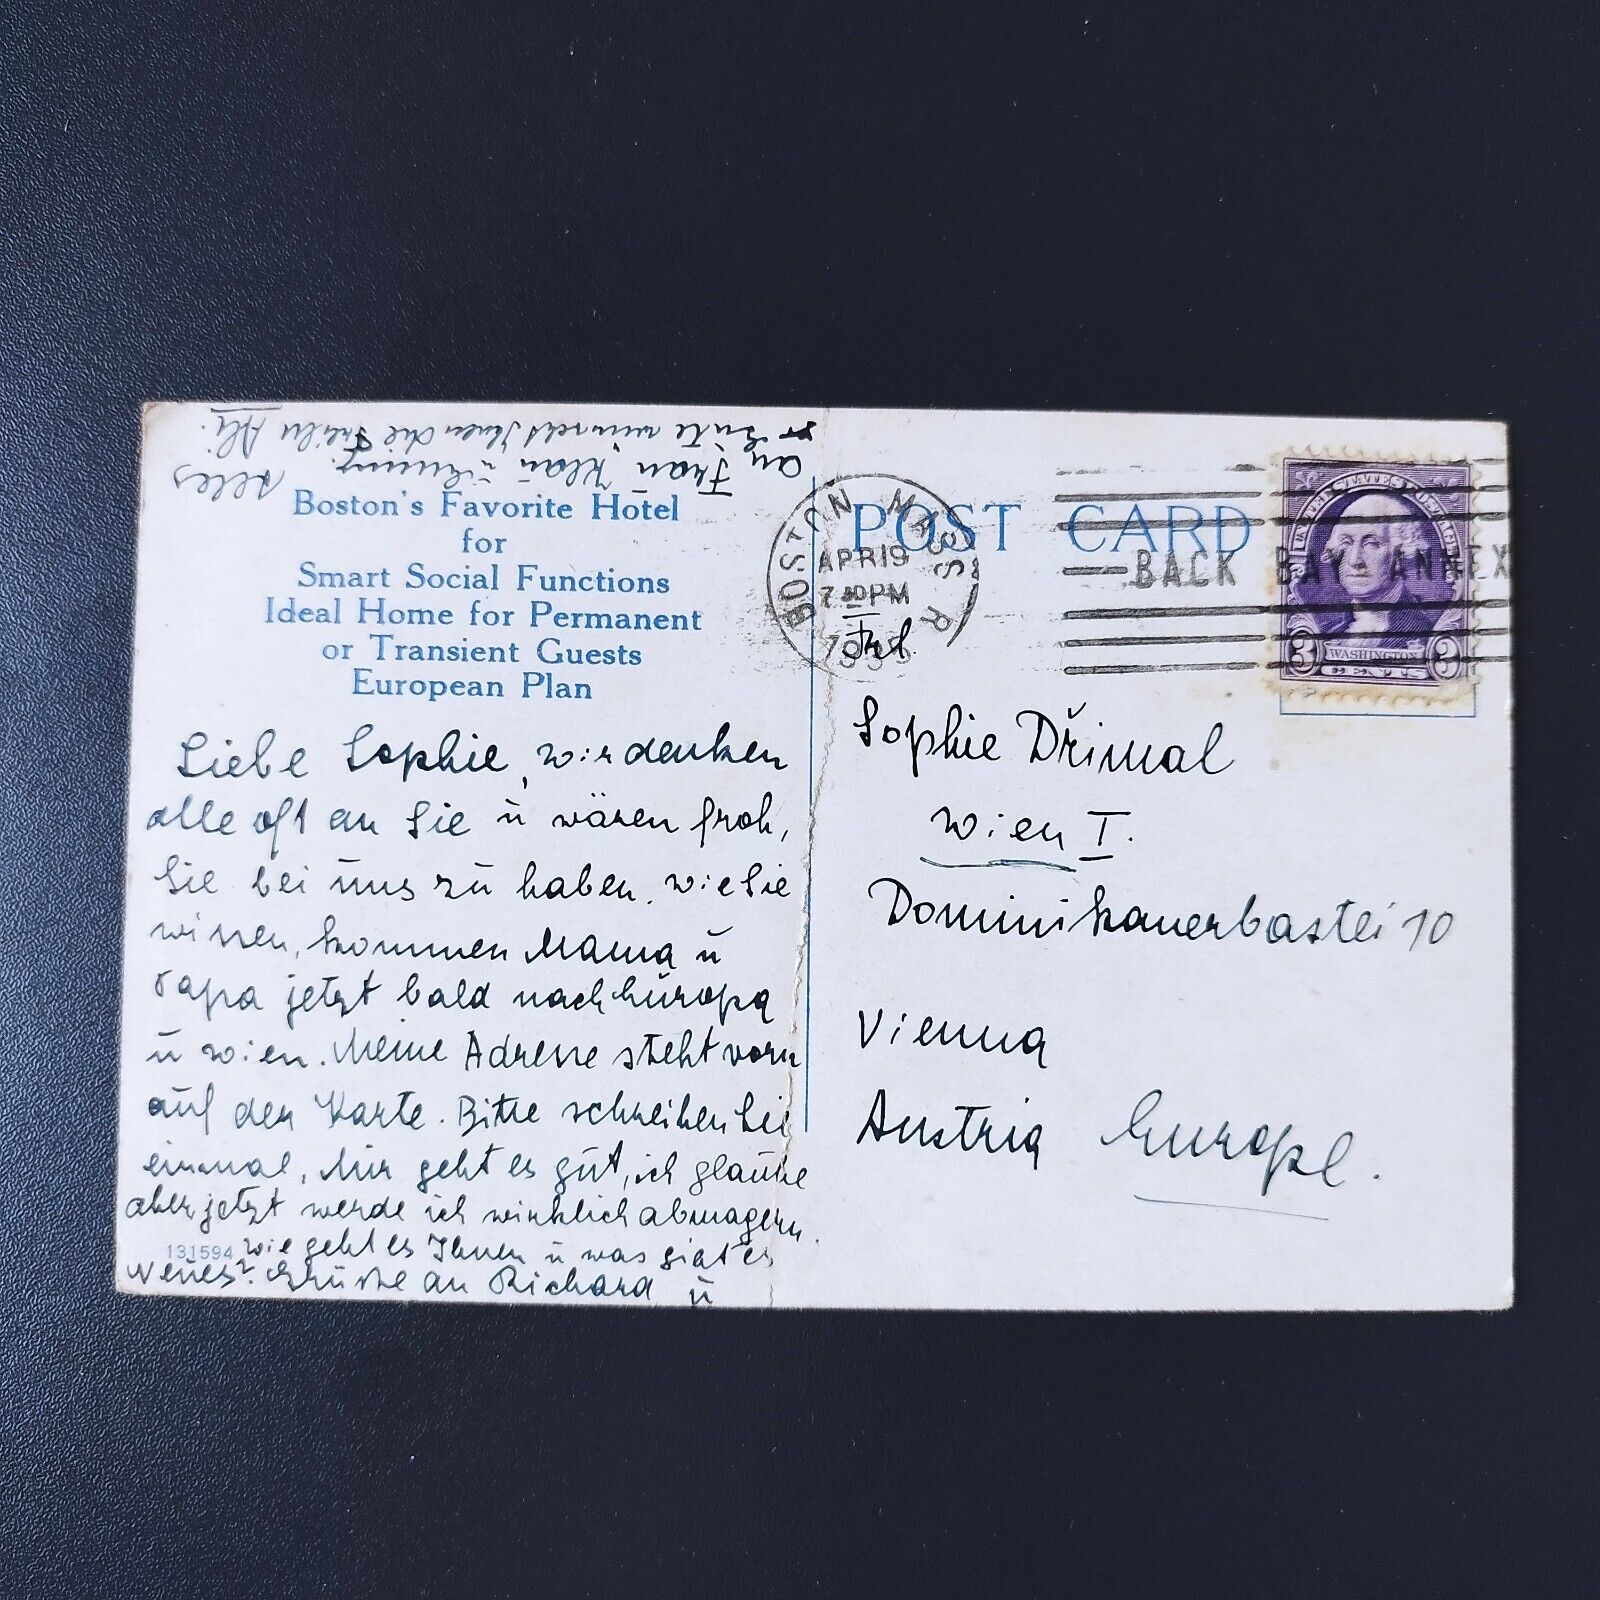 Boston's Favorite Hotel
for
Smart Social Functions
Ideal Home for Permanent
or Transient Guests
European Plan
Liebe Sophie, wir denken
alle oft an Sie u wären froh,
Sie bei uns zu haben. Wie Sie
wissen, kommen Mama u
Papa jetzt bald nach Europa
u Wien. Meine Adresse steht vorn
auf der Karte. Bitte schreiben Sie
einmal, Mir geht es gut, ich glaube
aber, jetzt werde ich wirklich abmagern.
131594 Wie geht es Ihnen u was gibt es
Neues? Grüsse an Richard u
an Frau Klari u Alles
Gute wünscht Ihnen die
POST CARD
BOSTON MASS. R
APR 19
7 30 PM
1935
BACK BAY ANNEX
UNITED STATES POSTAGE
3 WASHINGTON 3
CENTS
Frl.
Sophie Dřimal
Wien I.
Dominikanerbastei 10
Vienna
Austria Europe.